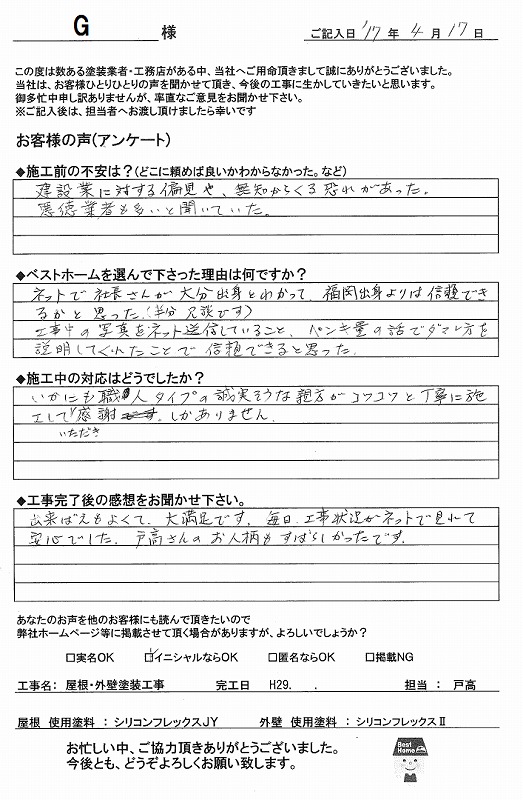 G 様
ご記入日 '17 年 4 月 17 日
この度は数ある塗装業者・工務店がある中、当社へご用命頂きまして誠にありがとうございました。
当社は、お客様ひとりひとりの声を聞かせて頂き、今後の工事に生かしていきたいと思います。
御多忙中申し訳ありませんが、率直なご意見をお聞かせ下さい。
※ご記入後は、担当者へお渡し頂けましたら幸いです
お客様の声(アンケート)
◆施工前の不安は？(どこに頼めば良いかわからなかった。など)
建設業に対する偏見や、無知からくる恐れがあった。
悪徳業者も多いと聞いていた。
◆ベストホームを選んで下さった理由は何ですか？
ネットで社長さんが大分出身とわかって、福岡出身よりは信頼でき
るかと思った(半分冗談です)
工事中の写真をネット送信していること、ペンキ量の話でダマし方を
説明してくれたことで信頼できると思った。
◆施工中の対応はどうでしたか？
いかにも職人タイプの誠実そうな親方がコツコツと丁寧に施
工して感謝しかありません。
いただき
◆工事完了後の感想をお聞かせ下さい。
出来ばえもよくて、大満足です。毎日、工事状況がネットで見れて
安心でした。戸高さんのお人柄もすばらしかったです。
あなたのお声を他のお客様にも読んで頂きたいので
弊社ホームページ等に掲載させて頂く場合がありますが、よろしいでしょうか？
□実名OK ☑イニシャルならOK □匿名ならOK □掲載NG
工事名： 屋根・外壁塗装工事 完工日 H29. . 担当 ： 戸高
屋根 使用塗料 ： シリコンフレックスJY 外壁 使用塗料 ： シリコンフレックスⅡ
お忙しい中、ご協力頂きありがとうございました。
今後とも、どうぞよろしくお願い致します。
Best
Home